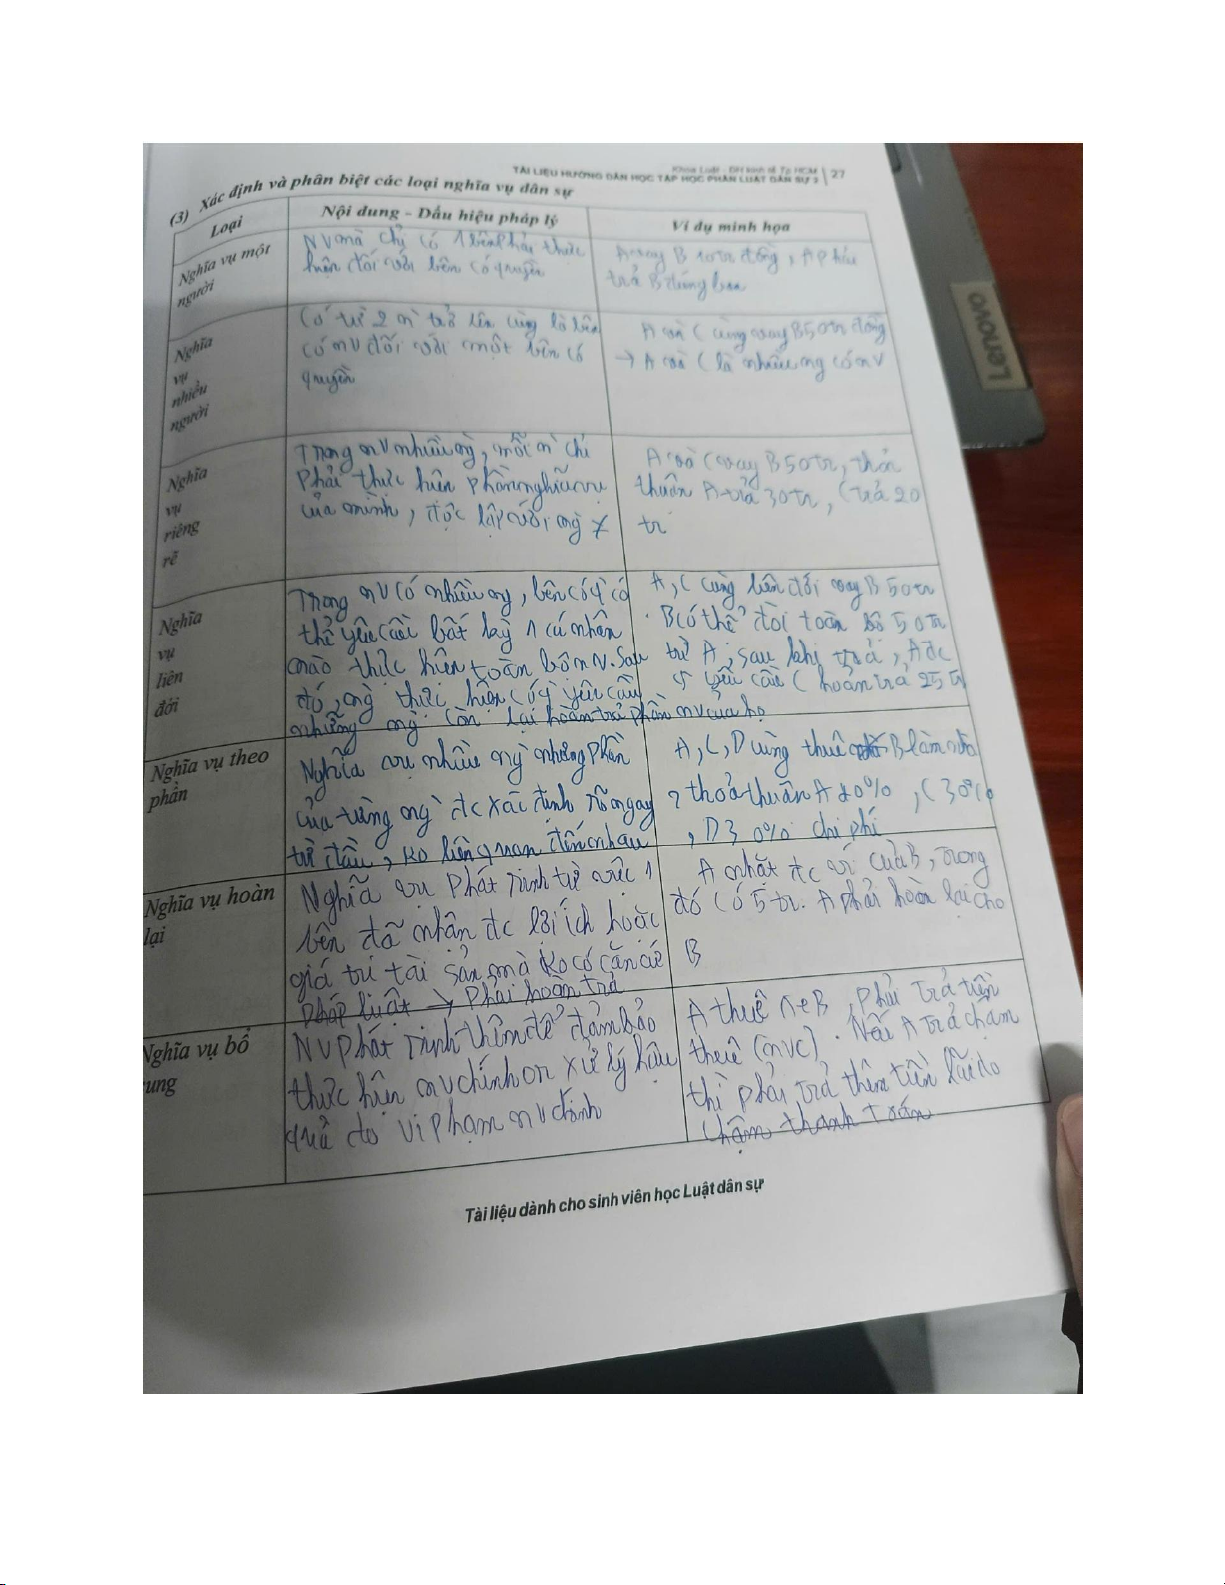 Khoa Luật - ĐH kinh tế Tp.HCM
TÀI LIỆU HƯỚNG DẪN HỌC TẬP HỌC PHẦN LUẬT DÂN SỰ 2 | 27
(3) Xác định và phân biệt các loại nghĩa vụ dân sự
Loại
Nội dung - Dấu hiệu pháp lý
Ví dụ minh họa
Nghĩa vụ một
người
NV mà chỉ có 1 bên phải thực
hiện đối với bên có quyền
A vay B 10 tr đồng, A phải
trả B đúng hạn
Nghĩa
vụ
nhiều
người
Có từ 2 ng trở lên cùng là bên
có nv đối với một bên có
quyền
A và C cùng vay B 50 tr đồng
→ A và C là nhiều ng có nv
Nghĩa
vụ
riêng
rẽ
Trong nv nhiều ng, mỗi ng chỉ
phải thực hiện phần nghĩa vụ
của mình, độc lập với ng ≠
A và C vay B 50 tr, thỏa
thuận A trả 30 tr, C trả 20
tr
Nghĩa
vụ
liên
đới
Trong nv có nhiều ng, bên có q có
thể yêu cầu bất kỳ 1 cá nhân
nào thực hiện toàn bộ nv. Sau
đó, ng thực hiện có q yêu cầu
những ng còn lại hoàn trả phần nv của họ
A, C cùng liên đới vay B 50 tr
. B có thể đòi toàn bộ 50 tr
từ A, sau khi trả, A đc
yêu cầu C hoàn trả 25 tr
Nghĩa vụ theo
phần
Nghĩa vụ nhiều ng nhưng phần
của từng ng đc xác định rõ ngay
từ đầu, ko liên quan đến nhau
A, C, D cùng thuê B làm nhà
, thoả thuận A 40%, C 30%
, D 30% chi phí
Nghĩa vụ hoàn
lại
Nghĩa vụ phát sinh từ việc 1
bên đã nhận đc lợi ích hoặc
giá trị tài sản mà ko có căn cứ
pháp luật → phải hoàn trả
A nhặt đc ví của B, trong
đó có 5 tr. A phải hoàn lại cho
B
Nghĩa vụ bổ
sung
NV phát sinh thêm để đảm bảo
thực hiện nv chính or xử lý hậu
quả do vi phạm nv chính
A thuê xe B, phải trả tiền
thuê (nvc). Nếu A trả chậm
thì phải trả thêm tiền lãi do
chậm thanh toán
Tài liệu dành cho sinh viên học Luật dân sự
Lenovo